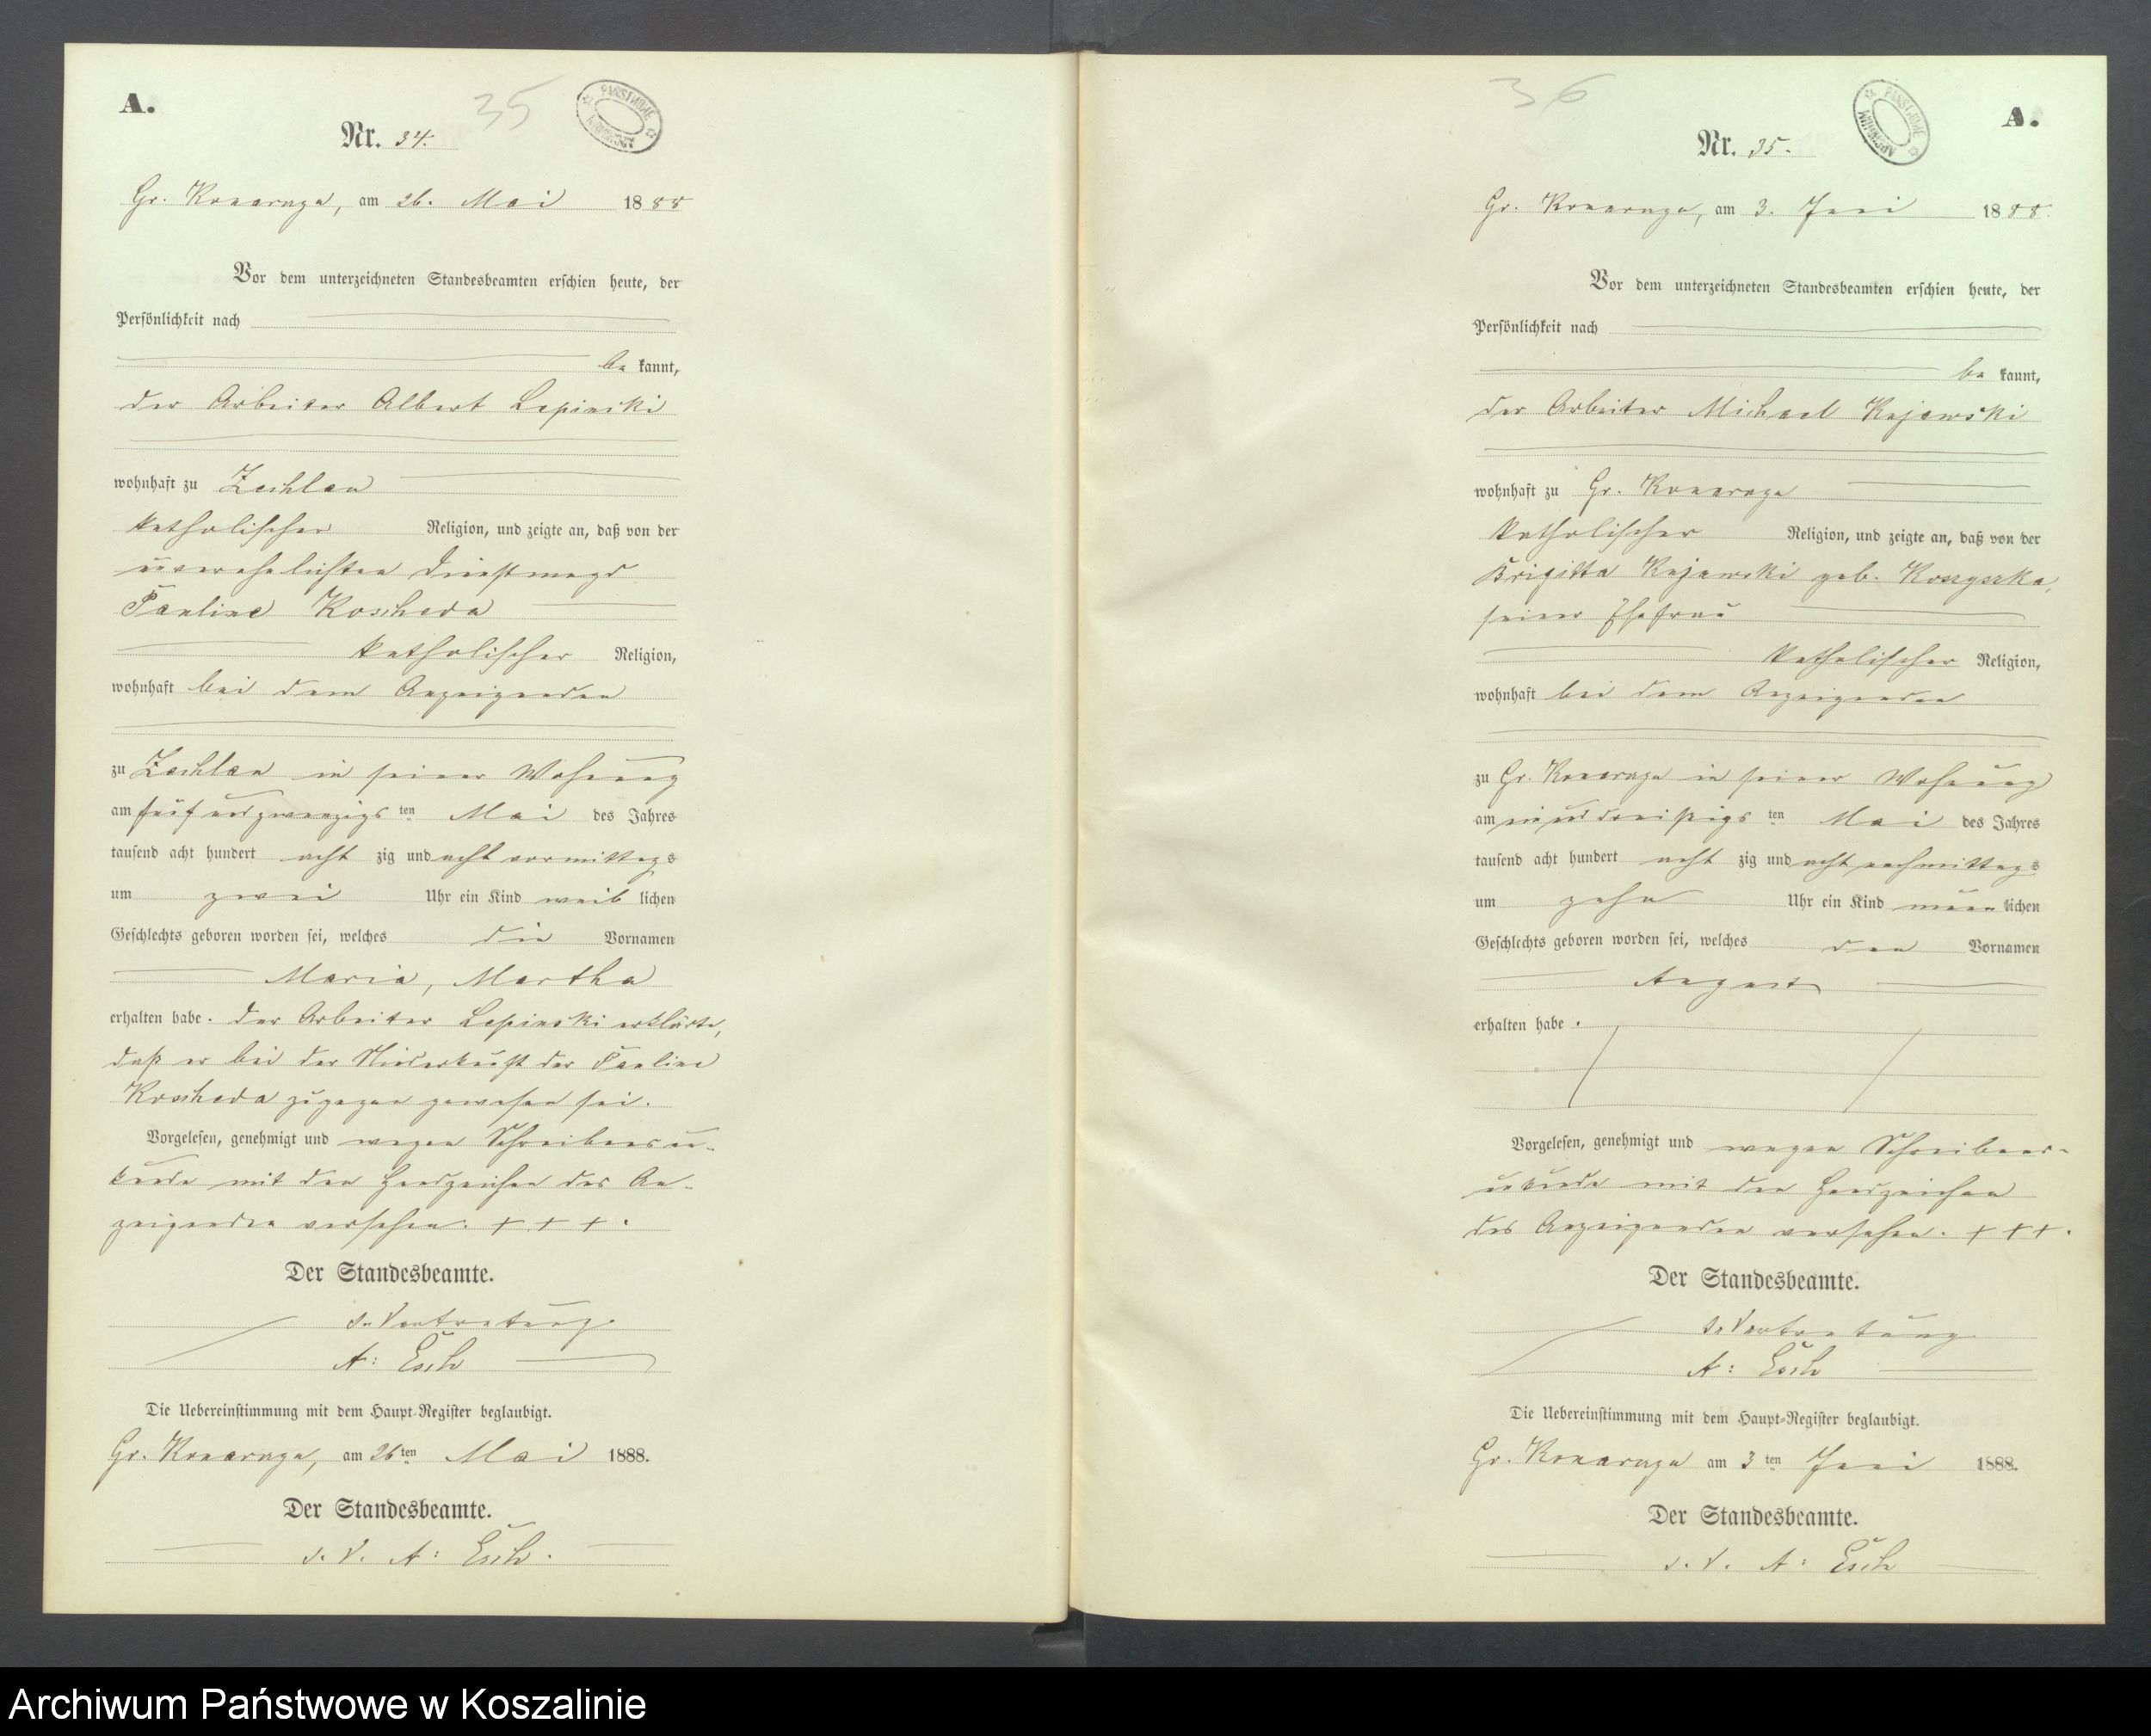 A.
35
PAŃSTWOWE ARCHIWUM
Nr. 34.
Gr. Konarczyn, am 26. Mai 1888
Vor dem unterzeichneten Standesbeamten erschien heute, der
Persönlichkeit nach
be kannt,
der Arbeiter Albert Lepinski
wohnhaft zu Zechlau
katholischer Religion, und zeigte an, daß von der
unverehelichten Dienstmagd
Pauline Koscheda
katholischer Religion,
wohnhaft bei dem Anzeigenden
zu Zechlau in seiner Wohnung
am fünfundzwanzigs ten Mai des Jahres
tausend acht hundert acht zig und acht vormittags
um zwei Uhr ein Kind weib lichen
Geschlechts geboren worden sei, welches die Vornamen
Maria, Martha
erhalten habe. Der Arbeiter Lepinski erklärte,
daß er bei der Niederkunft der Pauline
Koscheda zugegen gewesen sei.
Vorgelesen, genehmigt und wegen Schreibensun-
kunde mit den Handzeichen des An-
zeigenden versehen. + + + .
Der Standesbeamte.
Vertretung
A: Esch
Die Uebereinstimmung mit dem Haupt-Register beglaubigt.
Gr. Konarczyn, am 26 ten Mai 1888.
Der Standesbeamte.
V. A: Esch.
36
PAŃSTWOWE ARCHIWUM
A.
Nr. 35.
Gr. Konarczyn, am 3. Juni 1888.
Vor dem unterzeichneten Standesbeamten erschien heute, der
Persönlichkeit nach
be kannt,
der Arbeiter Michael Kujawski
wohnhaft zu Gr. Konarczyn
katholischer Religion, und zeigte an, daß von der
Brigitta Kujawski geb.
seiner Ehefrau
katholischer Religion,
wohnhaft bei dem Anzeigenden
zu Gr. Konarczyn in seiner Wohnung
am einunddreißigs ten Mai des Jahres
tausend acht hundert acht zig und acht nachmittags
um zehn Uhr ein Kind männ lichen
Geschlechts geboren worden sei, welches den Vornamen
August
erhalten habe.
Vorgelesen, genehmigt und wegen Schreibens-
unkunde mit den Handzeichen
des Anzeigenden versehen. + + + .
Der Standesbeamte.
Vertretung
A: Esch
Die Uebereinstimmung mit dem Haupt-Register beglaubigt.
Gr. Konarczyn am 3 ten Juni 1888.
Der Standesbeamte.
V. A: Esch
Archiwum Państwowe w Koszalinie